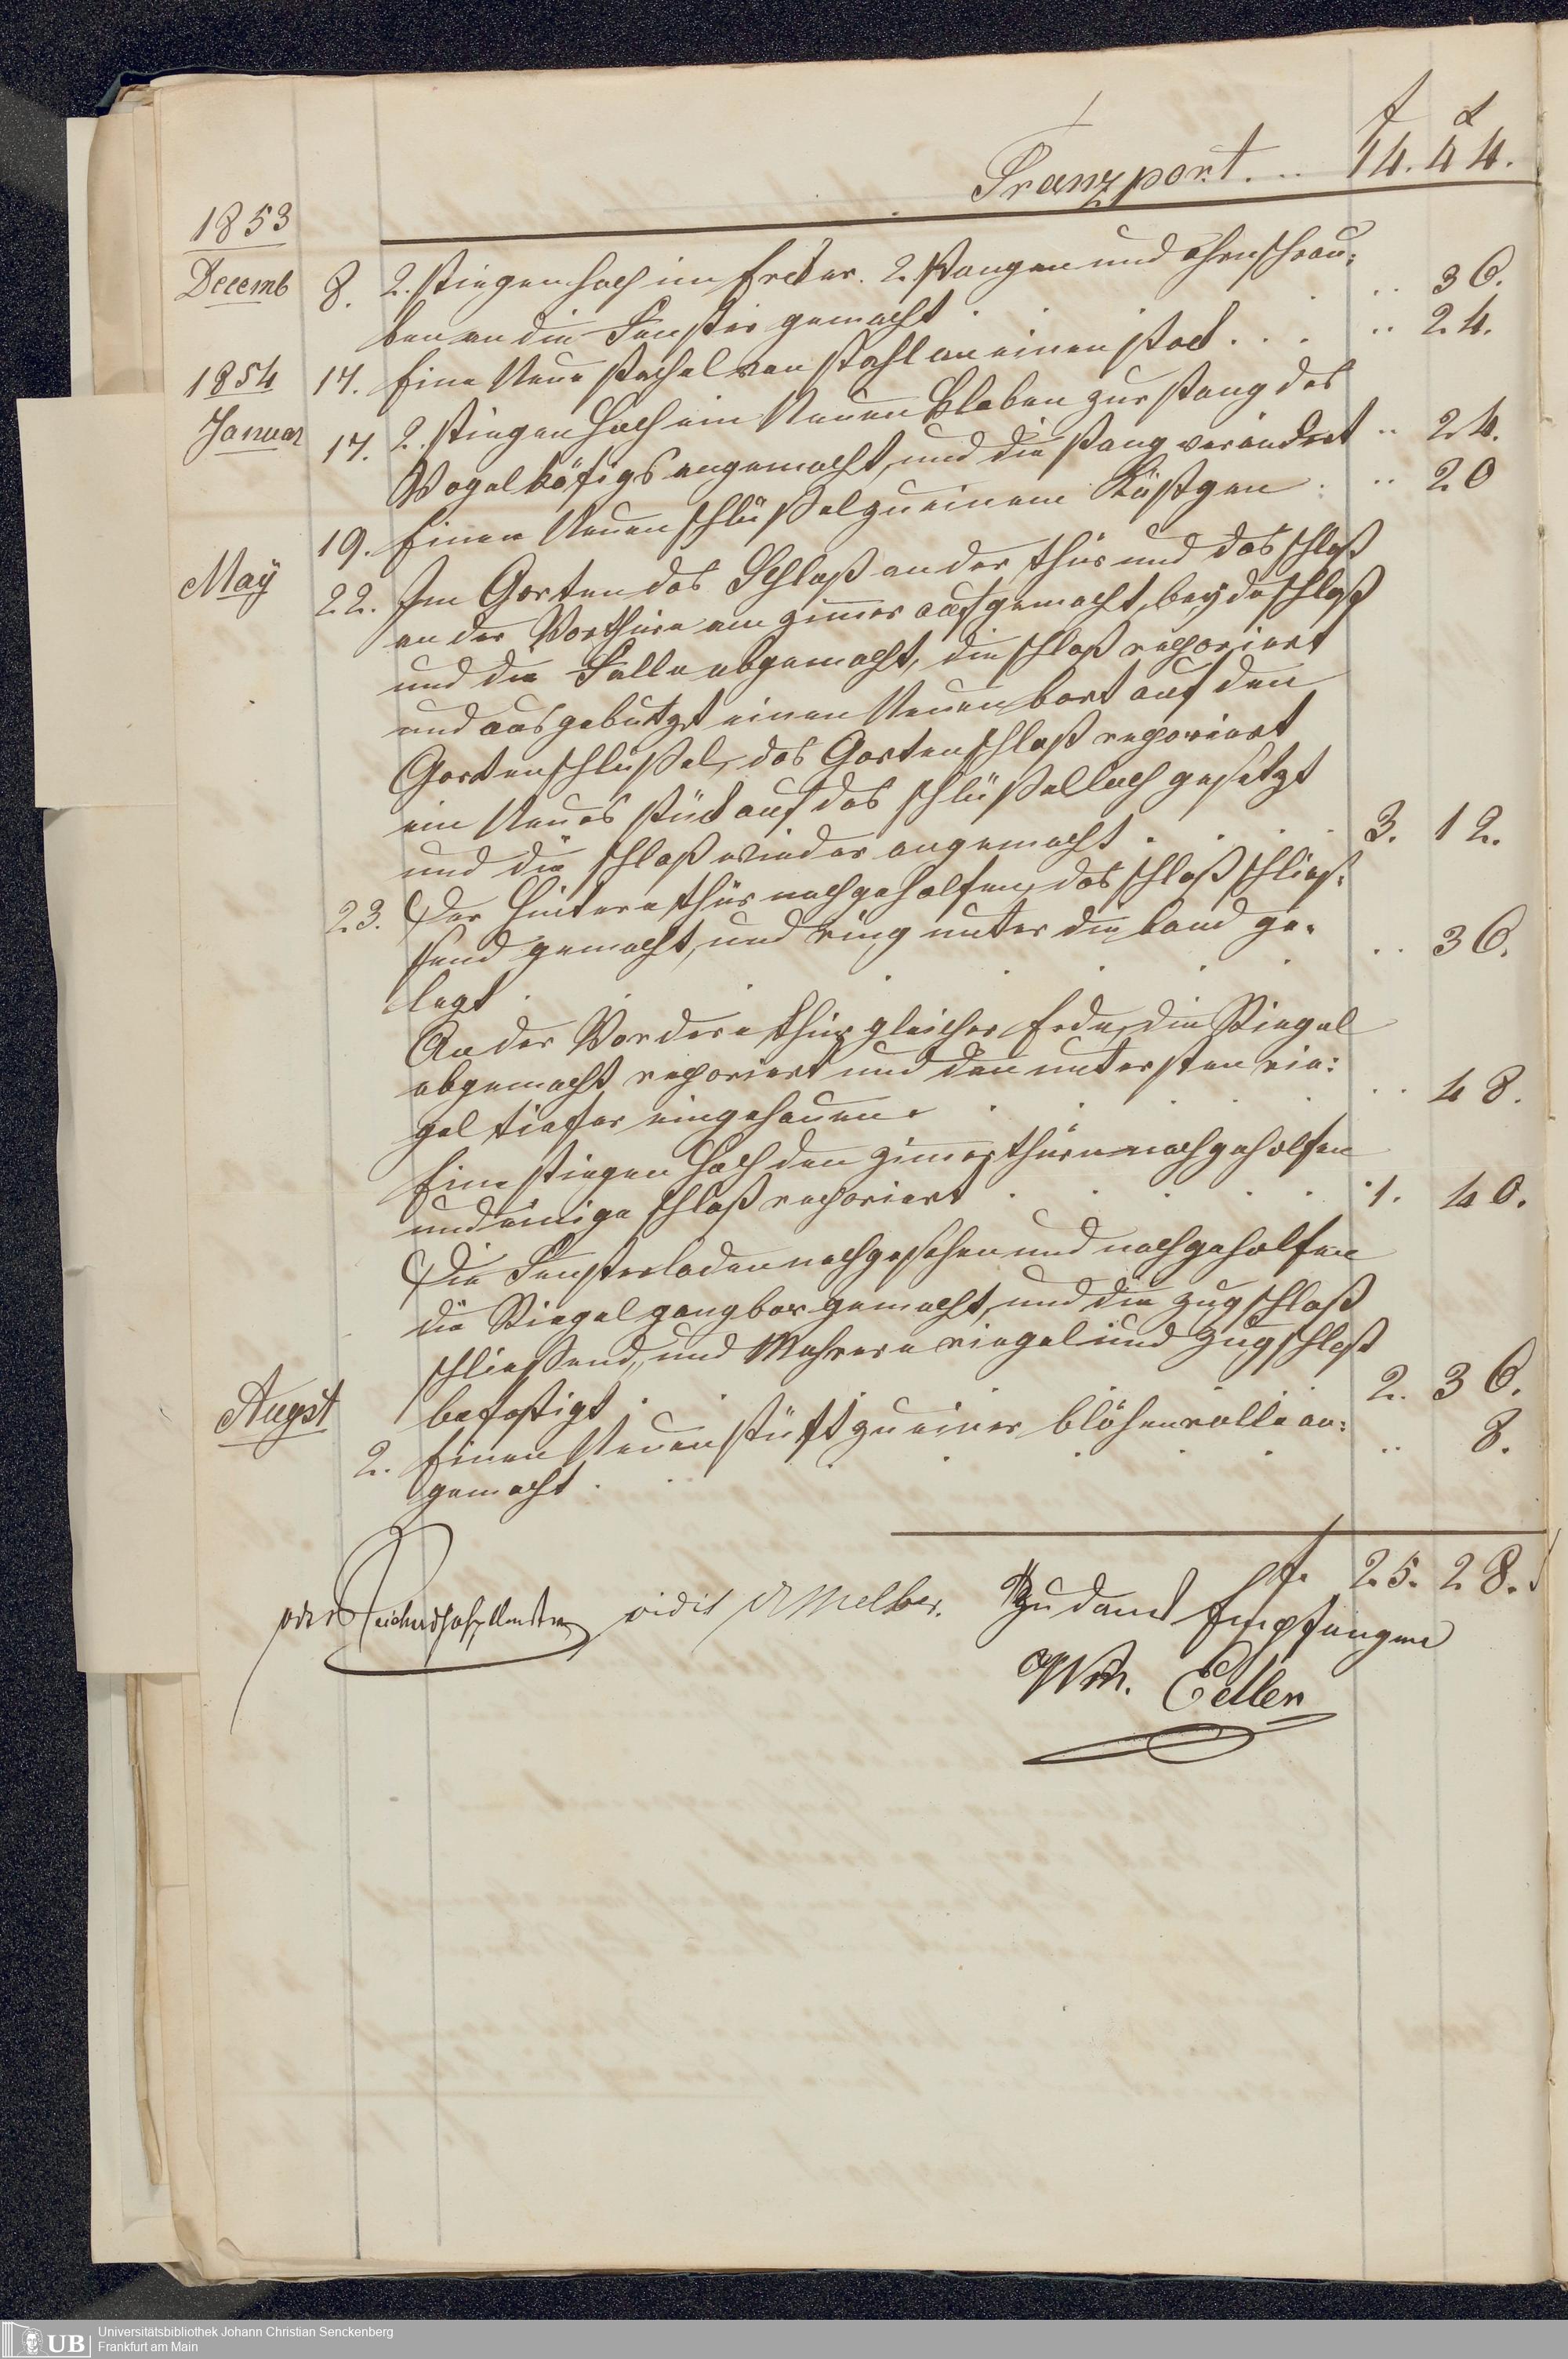 f x
Tranzport. .. 14. 44.
1853
Decemb 8. 2. stiegen hoch im Ercker. 2. Stangen und ohrschrau:
ben an die Fenster gemacht . .. 36.
17. Eine Neue stachel von stahl an einen stock . . . .. 24.
1854
Januar 17. 2. stiegen hoch ein Neuen Kloben zur stang des
Vogelkäfigs angemacht, und die stang verändert .. 24.
19. Einen Neuen schlüßel zu einem Kästgen . .. 20
May 22. Im Garten das Schloß an der thür und das schloß
an der Vorthüre am zimer aufgemacht, beyde schloß
und die Falle abgemacht, die schloß repariert
und ausgebutzt einen Neuen bart auf den
Gartenschlüßel, das Gartenschloß repariert
ein Neues stück auf das schlüßelloch gesetzt
und die schloß wieder angemacht . . . . 3. 12.
23. Der Hintere thür nachgeholfen, das schloß schlies:
send gemacht, und ring unter die band ge:
legt . . . . . . . .. 36.
An der Vordere thür gleicher Erde, die Riegel
abgemacht repariert und den untersten rie:
gel tiefer eingehauen . . . . . .. 48.
Eine stiegen hoch den zimerthüren nachgeholfen
und einige schloß repariert . . . . . 1. 40.
Die Fensterladen nachgesehen und nachgeholfen
die Riegel gangbar gemacht, und die zugschloß
schliessend, und Mehrere riegel und zugschloß
befestigt . . 2. 36.
Augst 2. Einen Neuen stüft zu einer rolle an:
gemacht . . . . . . . .. 8.
f. 25. 28.
vidit Melber. zu danck Empfangen
Wm. Edler
UB Universitätsbibliothek Johann Christian Senckenberg
Frankfurt am Main